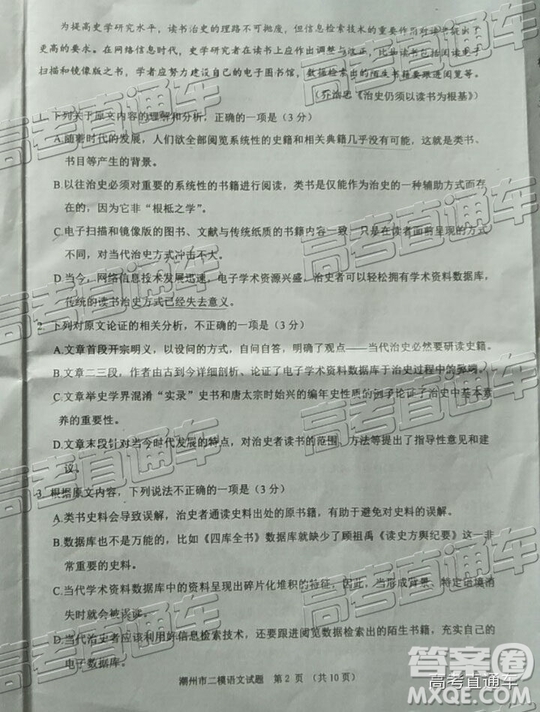 为提高史学研究水平，读书治史的理路不可抛废，但信息检索技术的重要作用对读史提出了
更高的要求。在网络信息时代，史学研究者在读书上应作出调整与转化，比如读书应包括电子
扫描和镜像版之书，学者应努力建设自己的电子图书馆，数据检索出的陌生书籍要跟进阅览等。
（乔治忠《治史仍须以读书为根基》）
1. 下列关于原文内容的理解和分析，正确的一项是（3 分）
A.随着时代的发展，人们欲全部阅览系统性的史籍和相关典籍几乎没有可能，这就是类书、
书目等产生的背景。
B.以往治史必须对重要的系统性的书籍进行阅读，类书是仅能作为治史的一种辅助方式而存
在的，因为它非“根柢之学”。
C.电子扫描和镜像版的图书、文献与传统纸质的书籍相比，只是在读者面前呈现的方式
不同，对当代治史方式冲击不大。
D.当今，网络信息技术发展迅速，电子学术资源兴盛，治史者可以轻松拥有学术资料数据库，
传统的读书治史方式已经失去意义。
2. 下列对原文论证的相关分析，不正确的一项是（3 分）
A.文章首段开宗明义，以设问的方式，自问自答，明确了观点——当代治史必然要研读史籍。
B.文章二三段，作者由古到今详细剖析、论证了电子学术资料数据库于治史过程中的弊端。
C.文章举史学界混淆“实录”史书和唐太宗时始兴的编年史性质的例子论证了治史中基本素
养的重要性。
D.文章末段针对当今时代发展的特点，对治史者读书的范围、方法等提出了指导性意见和建
议。
3. 根据原文内容，下列说法不正确的一项是（3 分）
A.类书史料会导致误解，治史者通读史料出处的原书籍，有助于避免对史料的误解。
B.数据库也不是万能的，比如《四库全书》数据库就缺少了顾祖禹《读史方舆纪要》这一非
常重要的史料。
C.当代学术资料数据库中的资料呈现出碎片化堆积的特征，因此，当形成背景、特定语境消
失时就会被误读。
D.当代治史者应该利用好信息检索技术，还要跟进阅览数据检索出的陌生书籍，充实自己的
电子数据库。
潮州市二模语文试题 第 2 页 （共 10 页）
高考直通车
答案圈
MXQE.COM
高考直通车